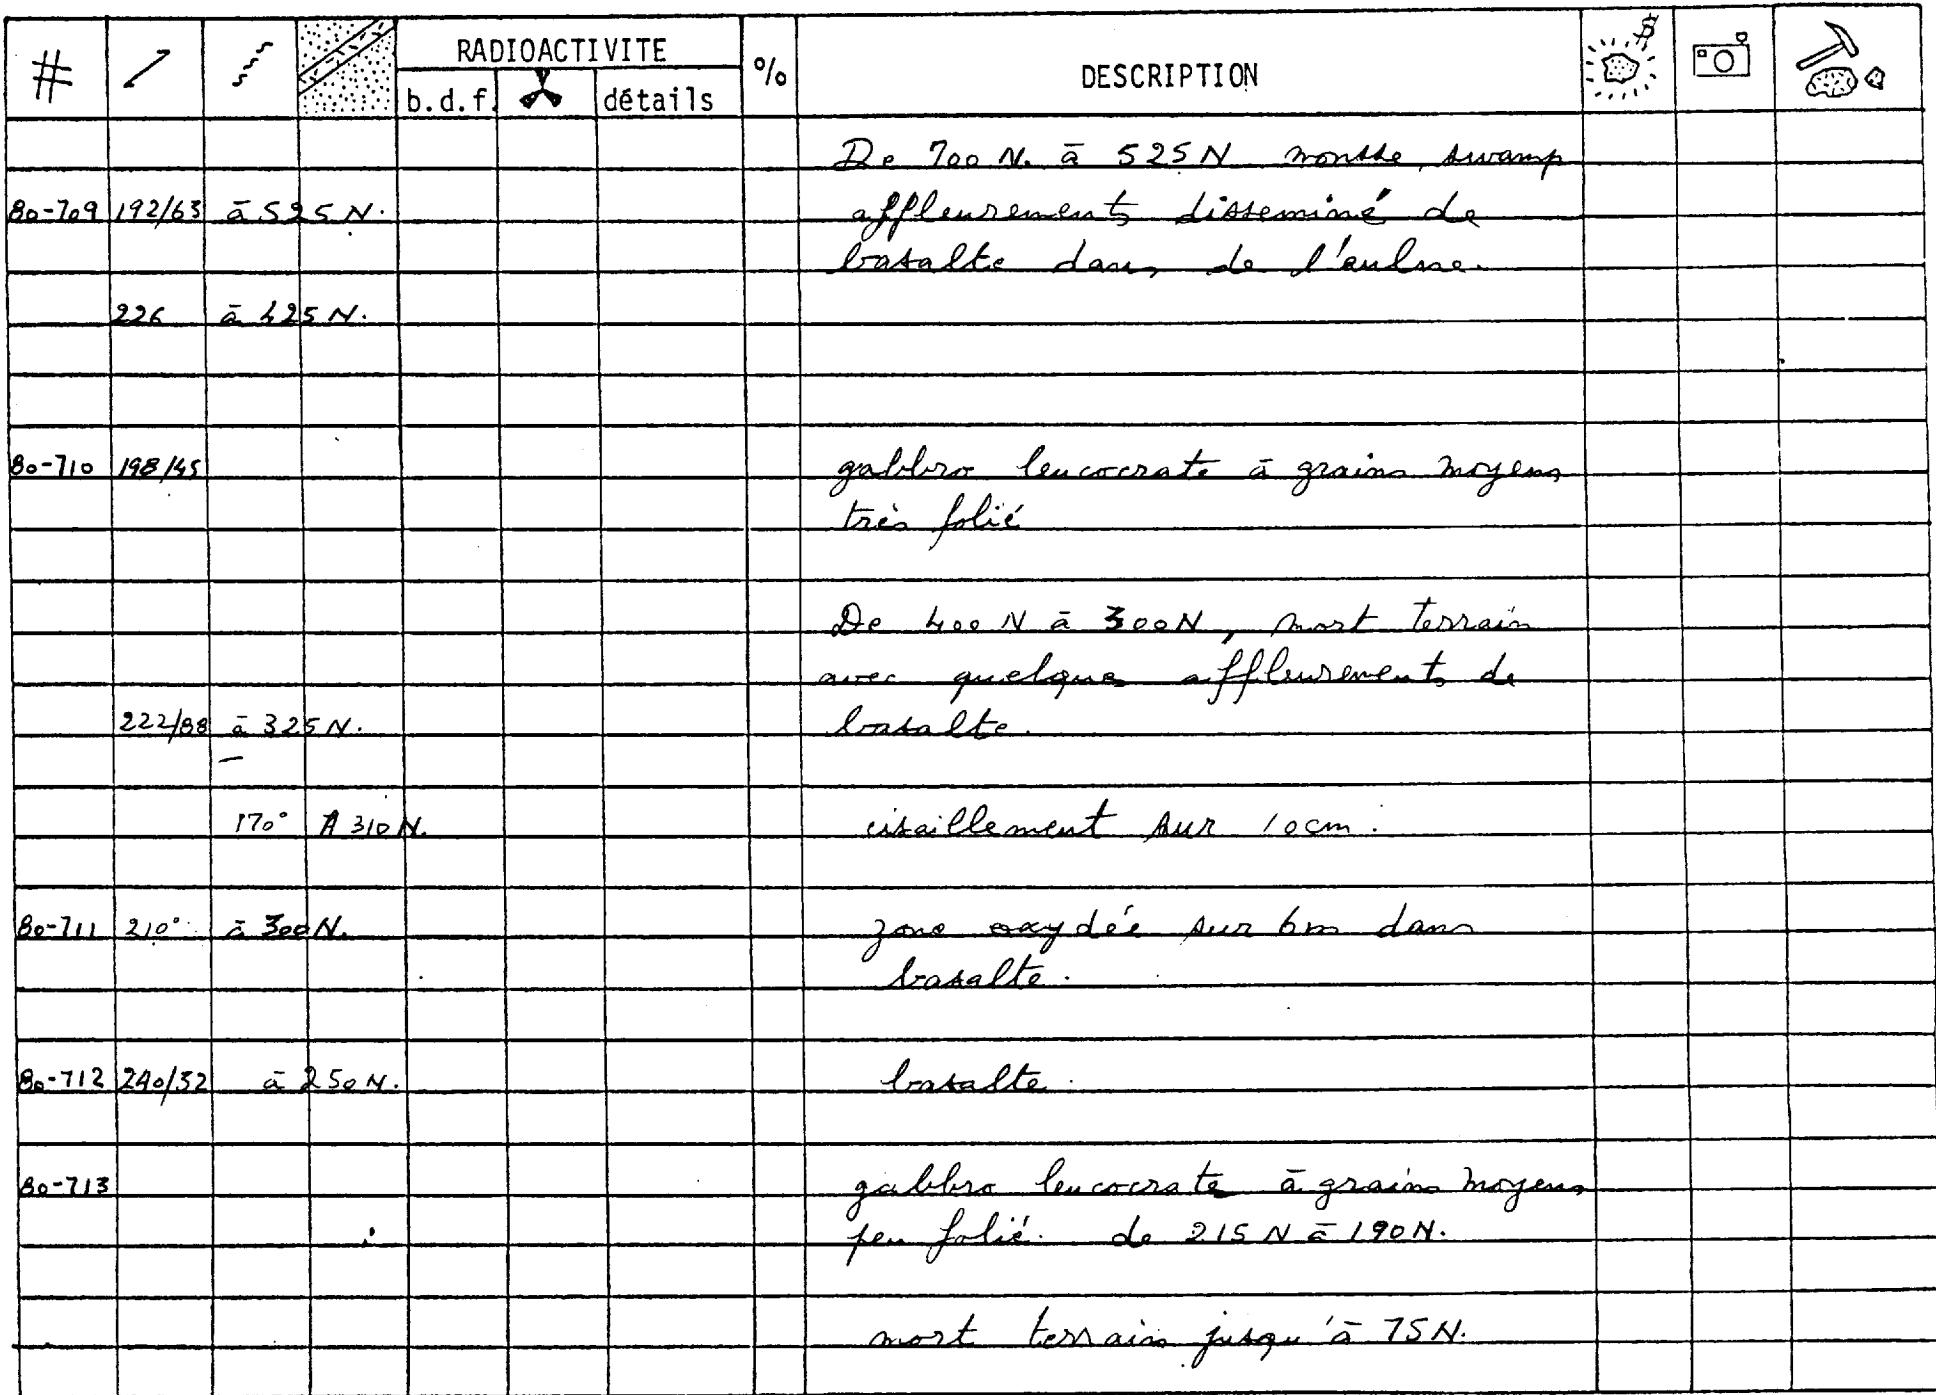 # RADIOACTIVITE % DESCRIPTION $
b.d.f. détails
De 700 N. à 525 N mousse, swamp
80-709 192/63 à 525 N. affleurements disseminé de
basalte dans de l'aulne.
226 à 425 N.
80-710 198/45 gabbro leucocrate à grains moyens
très folié
De 400 N à 300 N, mort terrain
avec quelques affleurements de
222/88 à 325 N. basalte.
170° A 310 N. cisaillement sur 10cm.
80-711 210° à 300 N. zone oxydée sur 6m dans
basalte.
80-712 240/32 à 250 N. basalte.
80-713 gabbro leucocrate à grains moyens
peu folié. de 215 N à 190 N.
mort terrain jusqu'à 75 N.